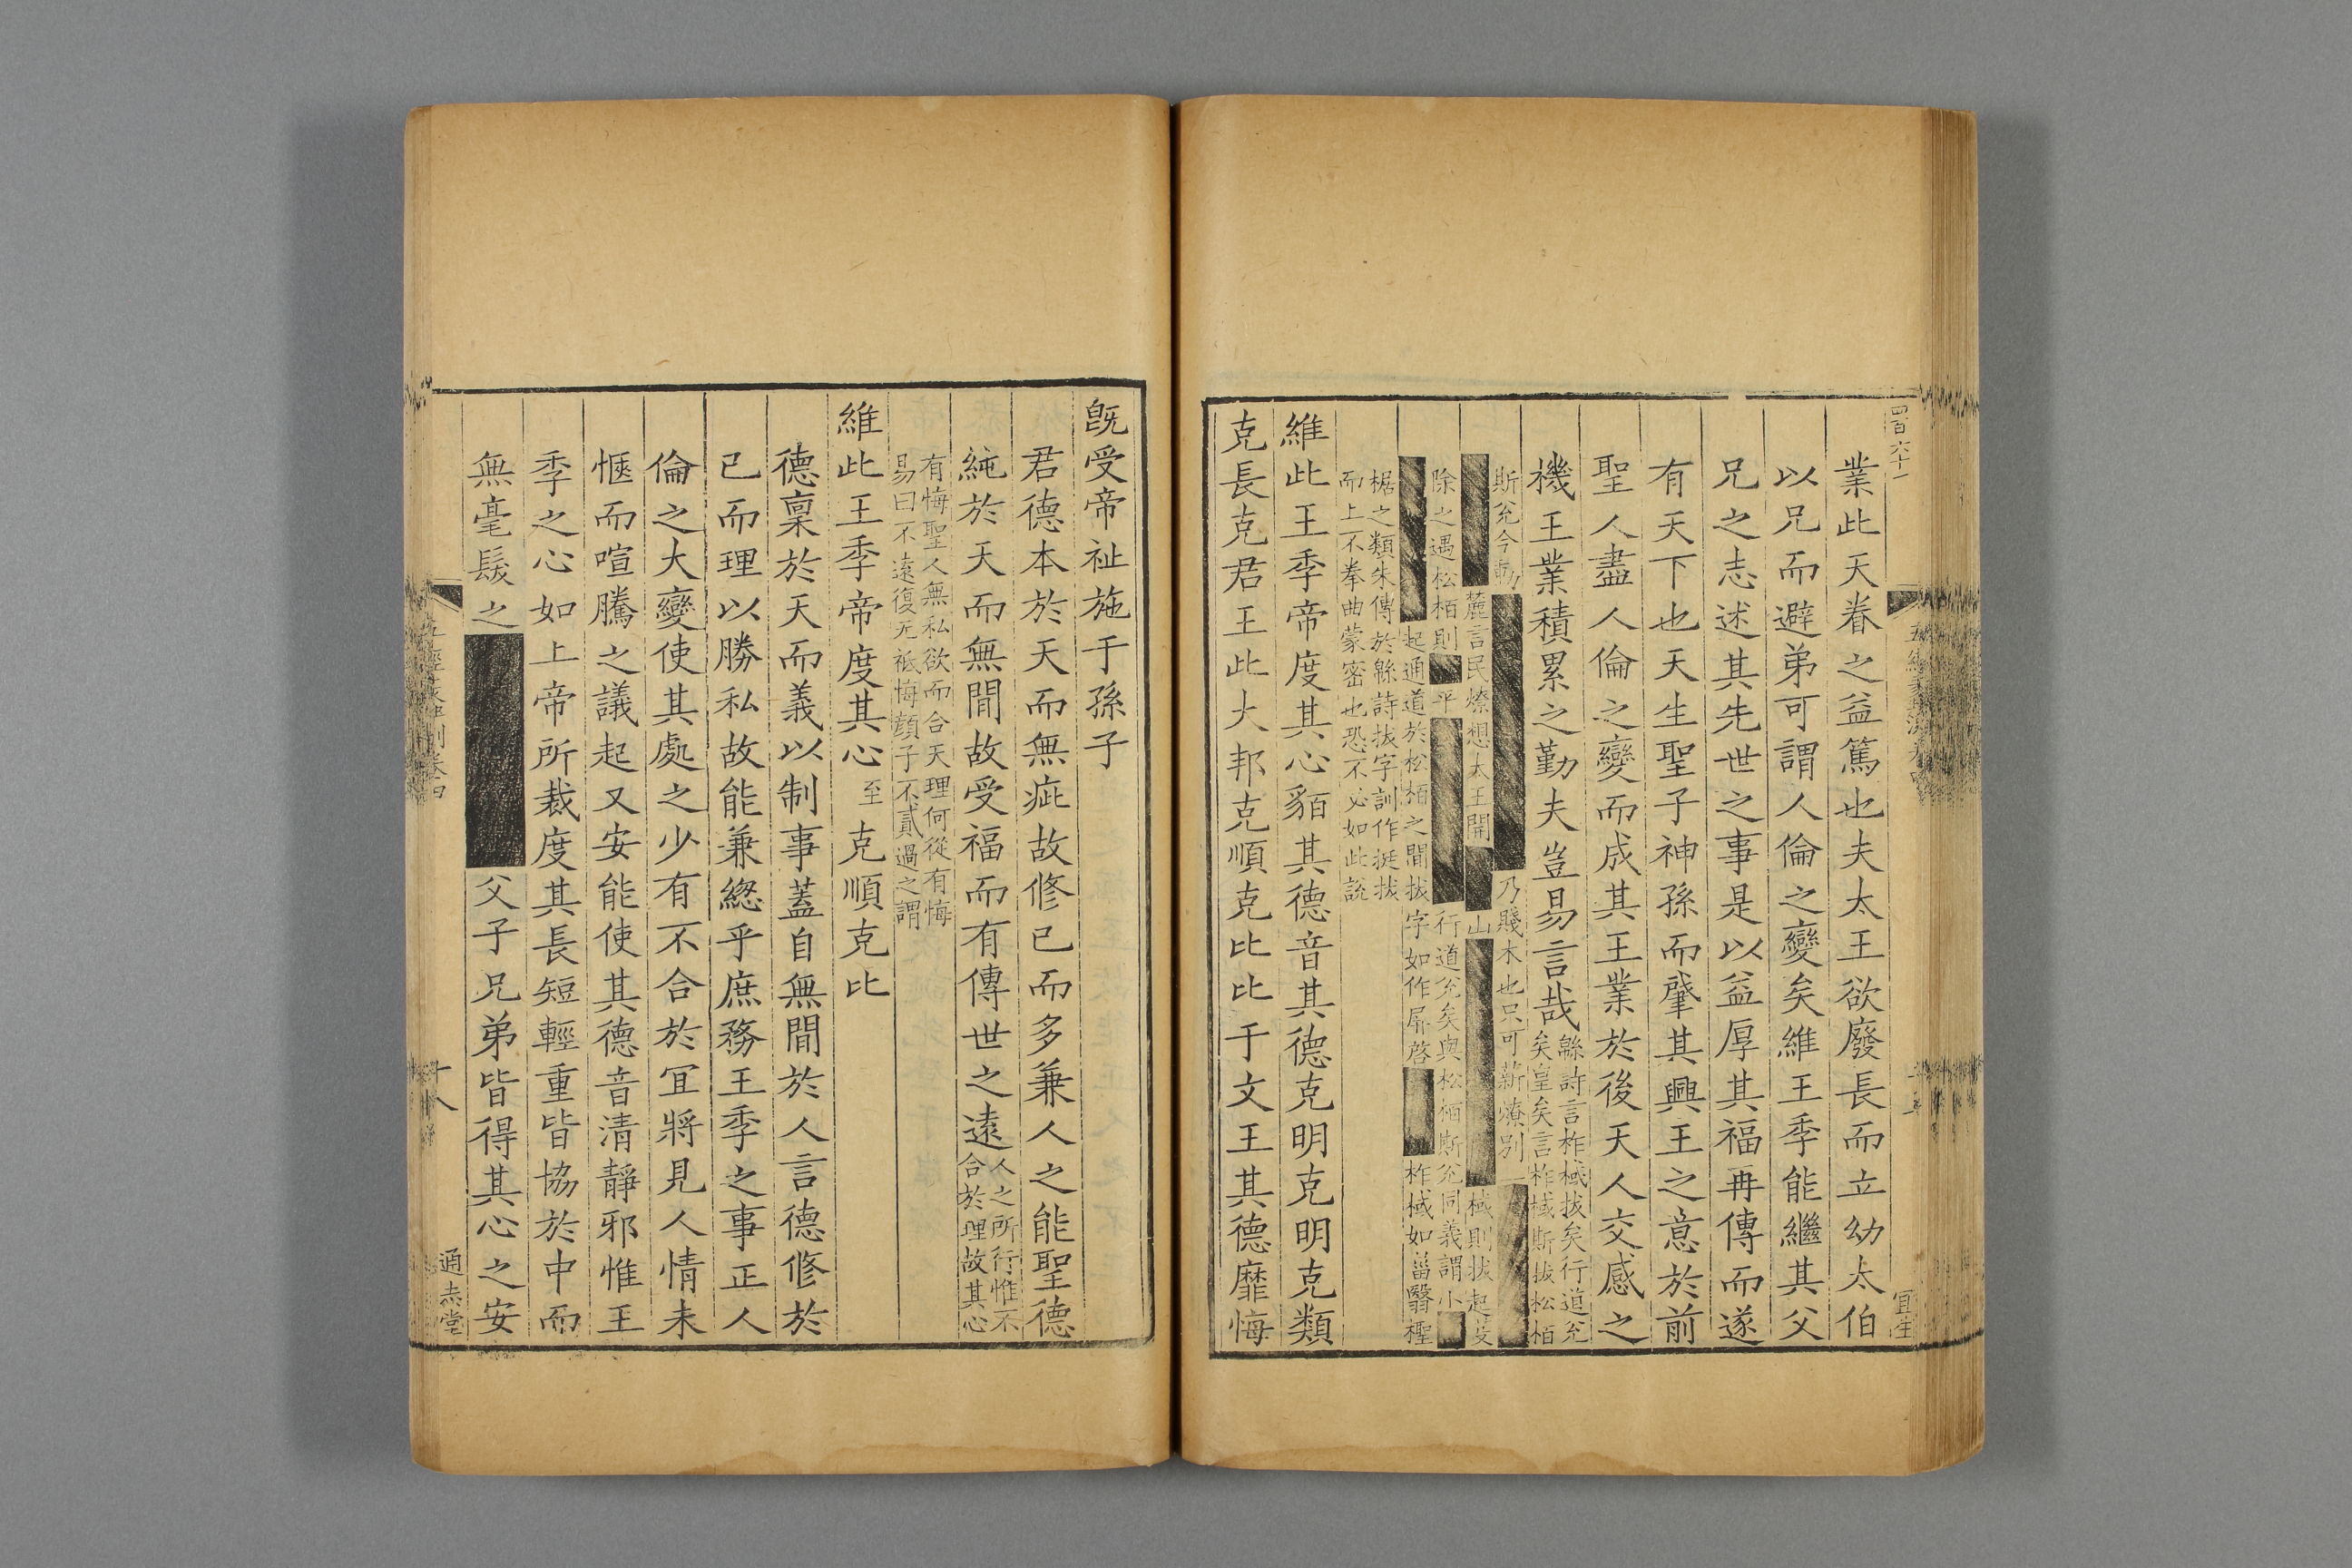 業此天眷之益篤也夫太王欲廢長而立幼太伯
以兄而避弟可謂人倫之變矣維王季能繼其父
兄之志述其先世之事是以益厚其福再傳而遂
有天下也天生聖子神孫而肇其興王之意於前
聖人盡人倫之變而成其王業於後天人交感之
機王業積累之勤夫豈易言哉
緜詩言柞棫拔矣行道兊
矣皇矣言柞棫斯拔松栢
斯兊今
乃賤木也只可薪燎別一
麓言民燎想太王開
山
棫則拔起
除之遇松栢則
平
行道兊矣與松栢斯兊同義謂小
起通道於松栢之間拔字如作屏啓
柞棫如菑翳檉
椐之類朱傳於緜詩拔字訓作挺拔
而上不拳曲蒙密也恐不必如此說
維此王季帝度其心貊其德音其德克明克明克類
克長克君王此大邦克順克比比于文王其德靡悔
旣受帝祉施于孫子
君德本於天而無疵故修已而多兼人之能聖德
純於天而無間故受福而有傳世之遠
人之所行惟不
合於理故其心
有悔聖人無私欲而合天理何從有悔
易曰不遠復无祗悔顔子不貳過之謂
維此王季帝度其心至克順克比
德稟於天而義以制事蓋自無間於人言德修於
已而理以勝私故能兼緫乎庶務王季之事正人
倫之大變使其處之少有不合於宜將見人情未
愜而喧騰之議起又安能使其德音清靜邪惟王
季之心如上帝所裁度其長短輕重皆協於中而
無毫髮之
父子兄弟皆得其心之安
十八
通志堂